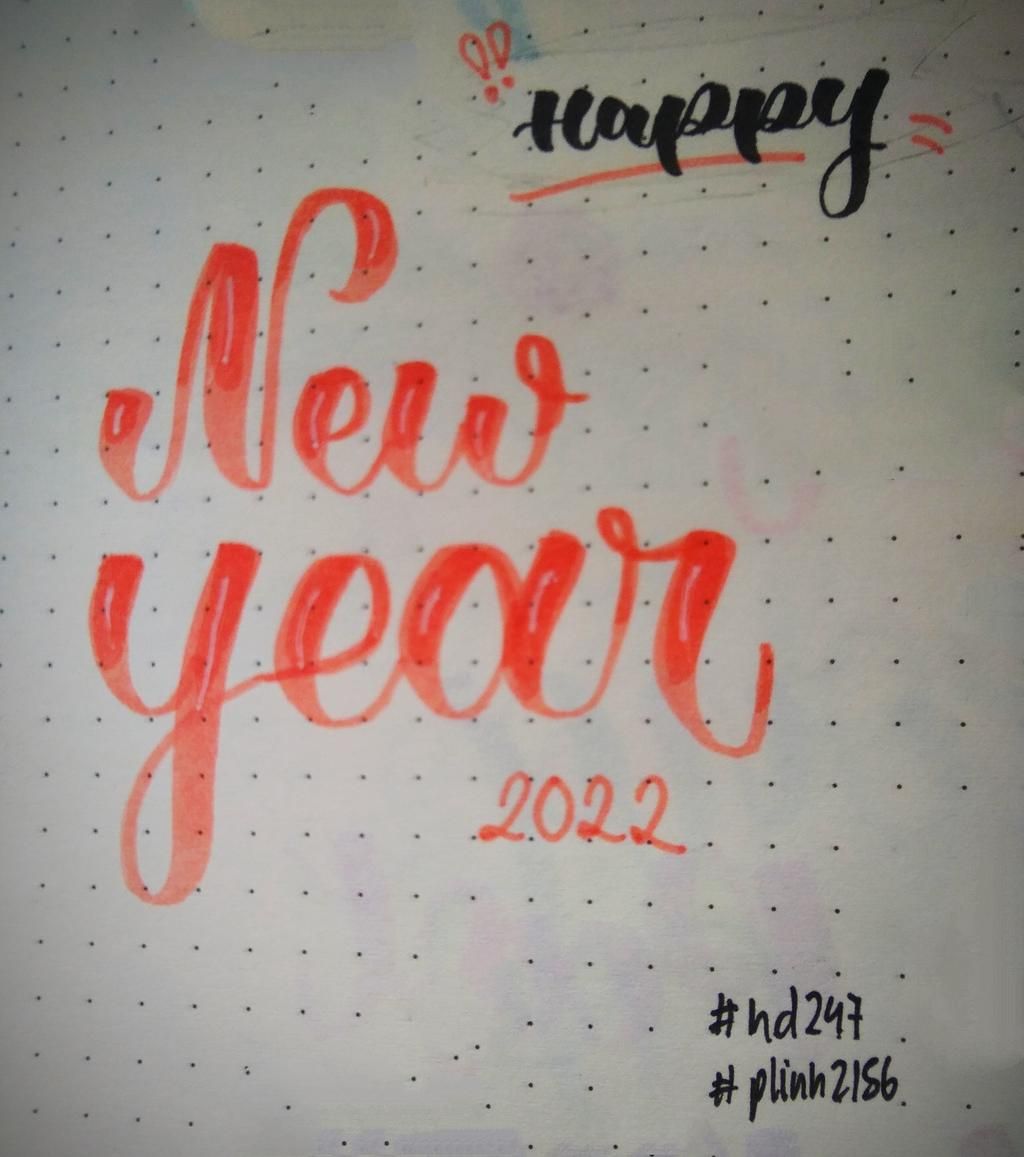 !! Happy
New
year
2022
#hd247
#plinh2156